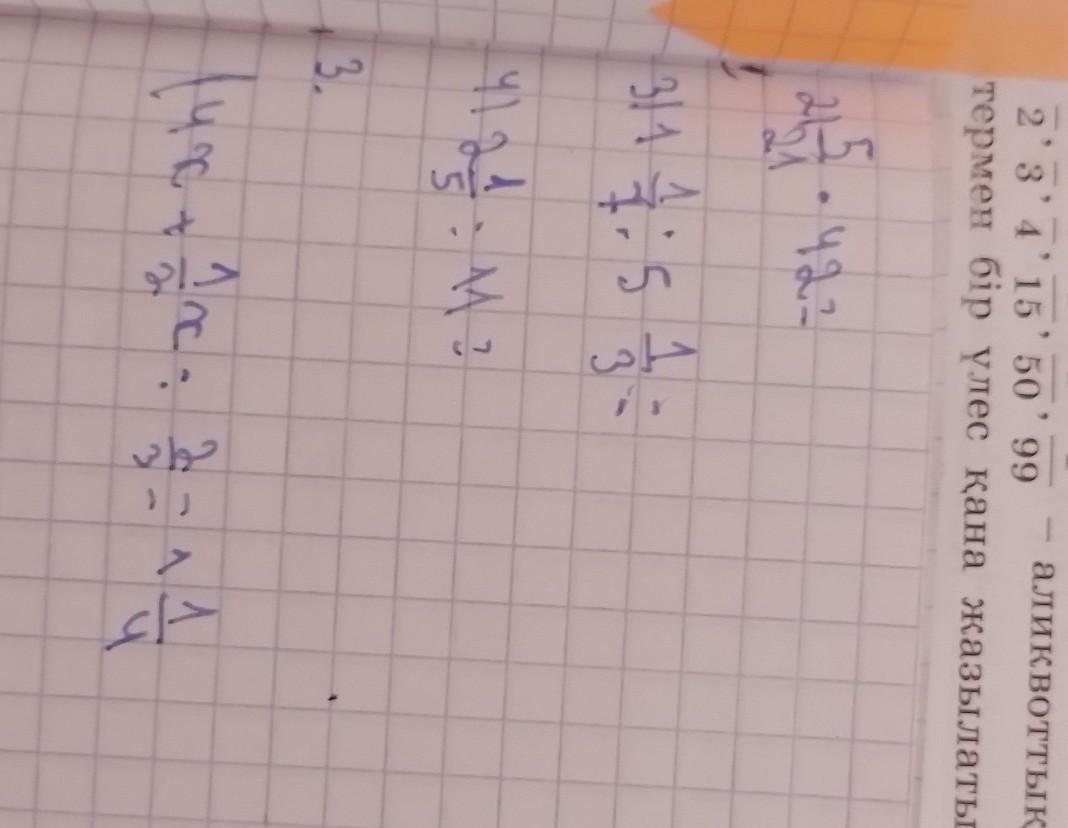 2, 3, 4, 15, 50, 99 – аликвоттық
термен бір үлес қана жазылаты
2) 5/21 · 42 =
3) 1 1/7 : 5 1/3 =
4) 2 1/5 : 11 =
3.
(4x + 1/2 x : 2/3 = 1 1/4